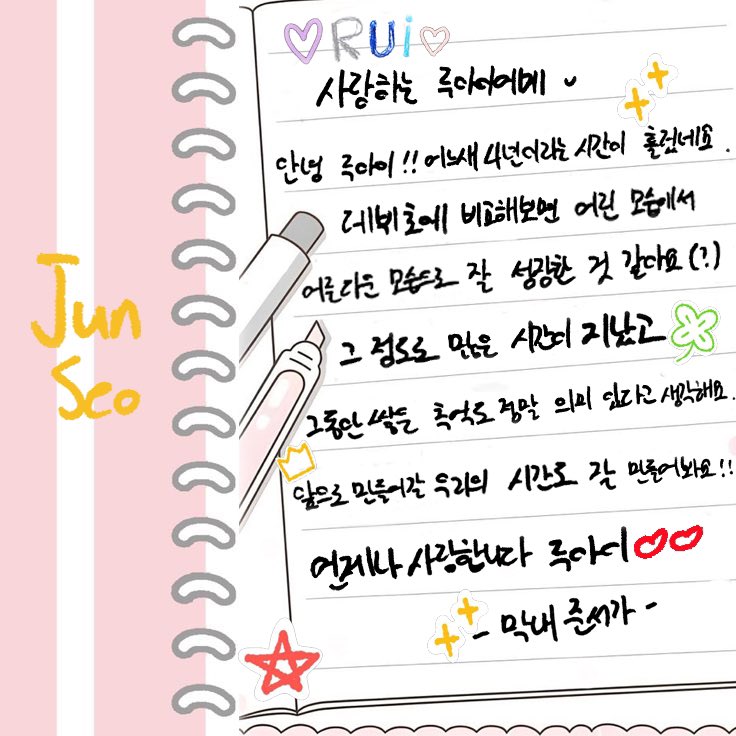 RUi
사랑하는 루아이에게
안녕 루아이!! 어느새 4년이라는 시간이 흘렀네요.
데뷔초에 비교해보면 어린 모습에서
어른다운 모습으로 잘 성장한 것 같아요(?)
그 정도로 많은 시간이 지났고
그동안 쌓은 추억도 정말 의미 있다고 생각해요.
앞으로 만들어갈 우리의 시간도 잘 만들어봐요!!
언제나 사랑합니다 루아이
- 막내 준서가 -
Jun
Seo